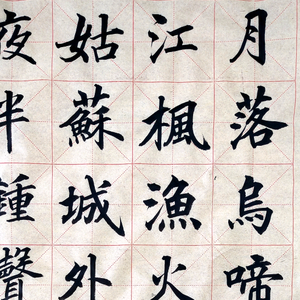 月落烏啼
江楓漁火
姑蘇城外
夜半鍾聲